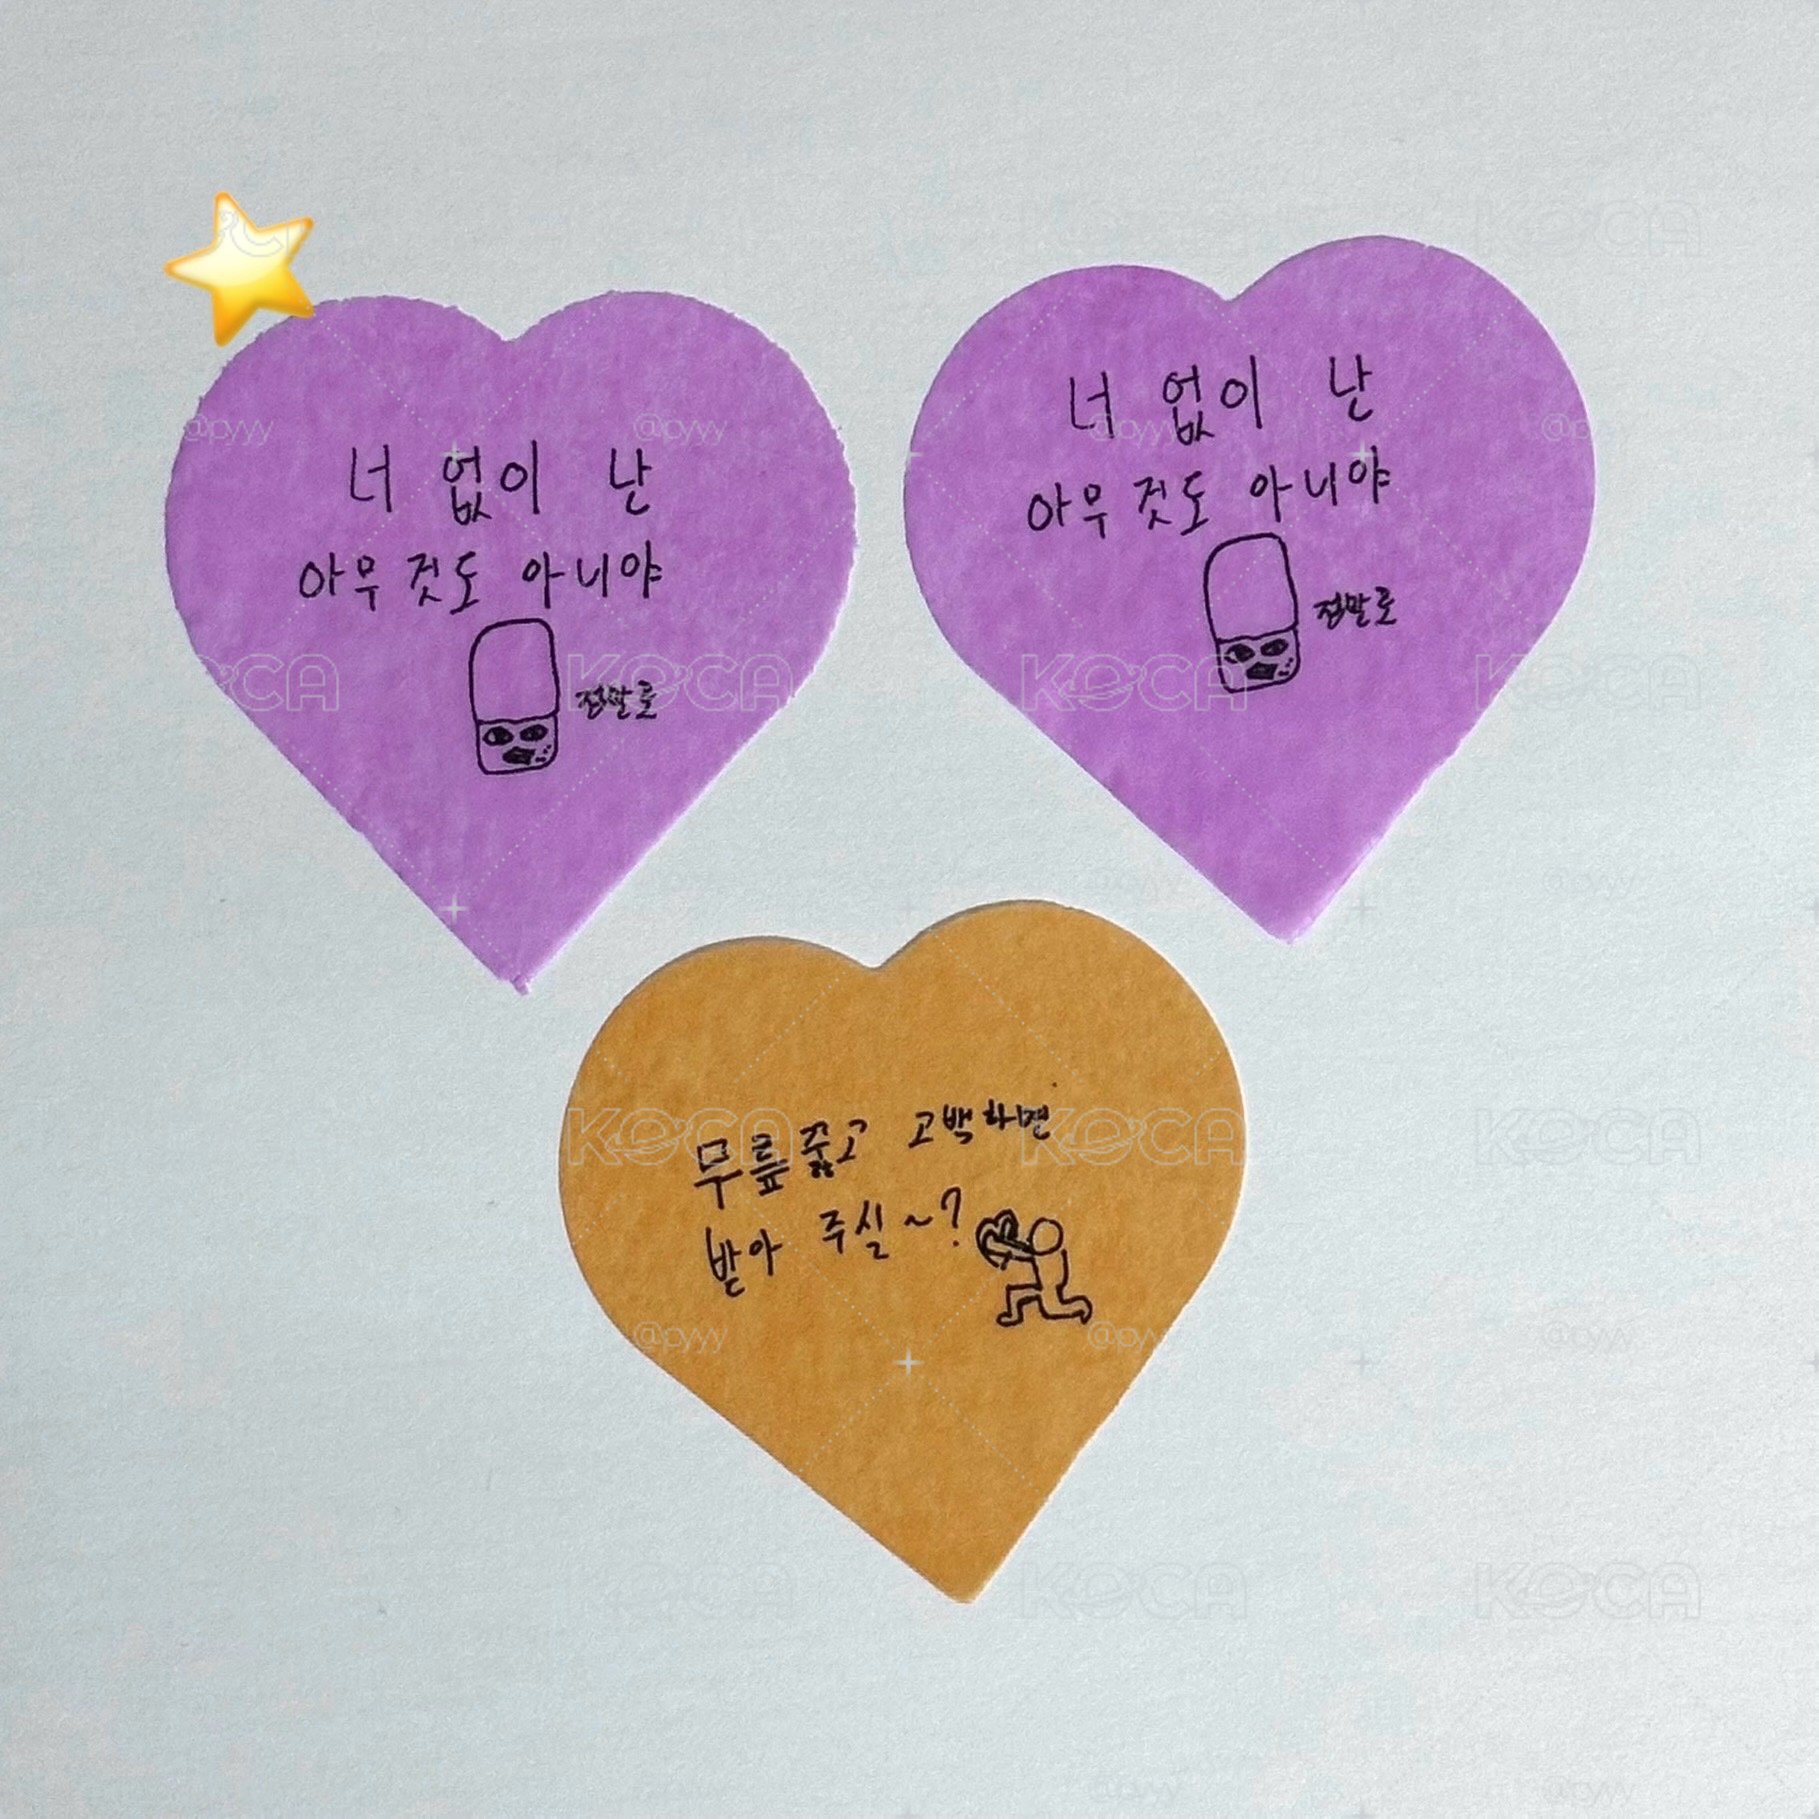 너 없이 난
아무것도 아니야
정말로
너 없이 난
아무것도 아니야
정말로
무릎 꿇고 고백하면
받아 주실~?
KOCA
@pyyy